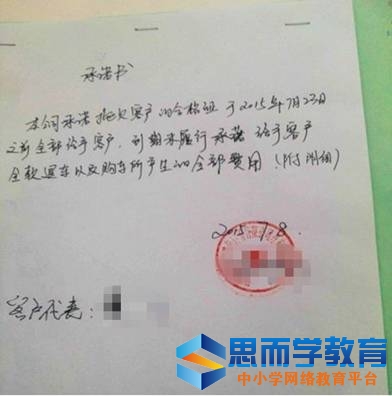 承诺书
本公司承诺拖欠客户的合格证于2015年7月23日
之前全部给予客户，到期未履行承诺给予客户
全款退车以及购车所产生的全部费用（附明细）
2015.7.8.
客户代表：
思而学教育
中小学网络教育平台